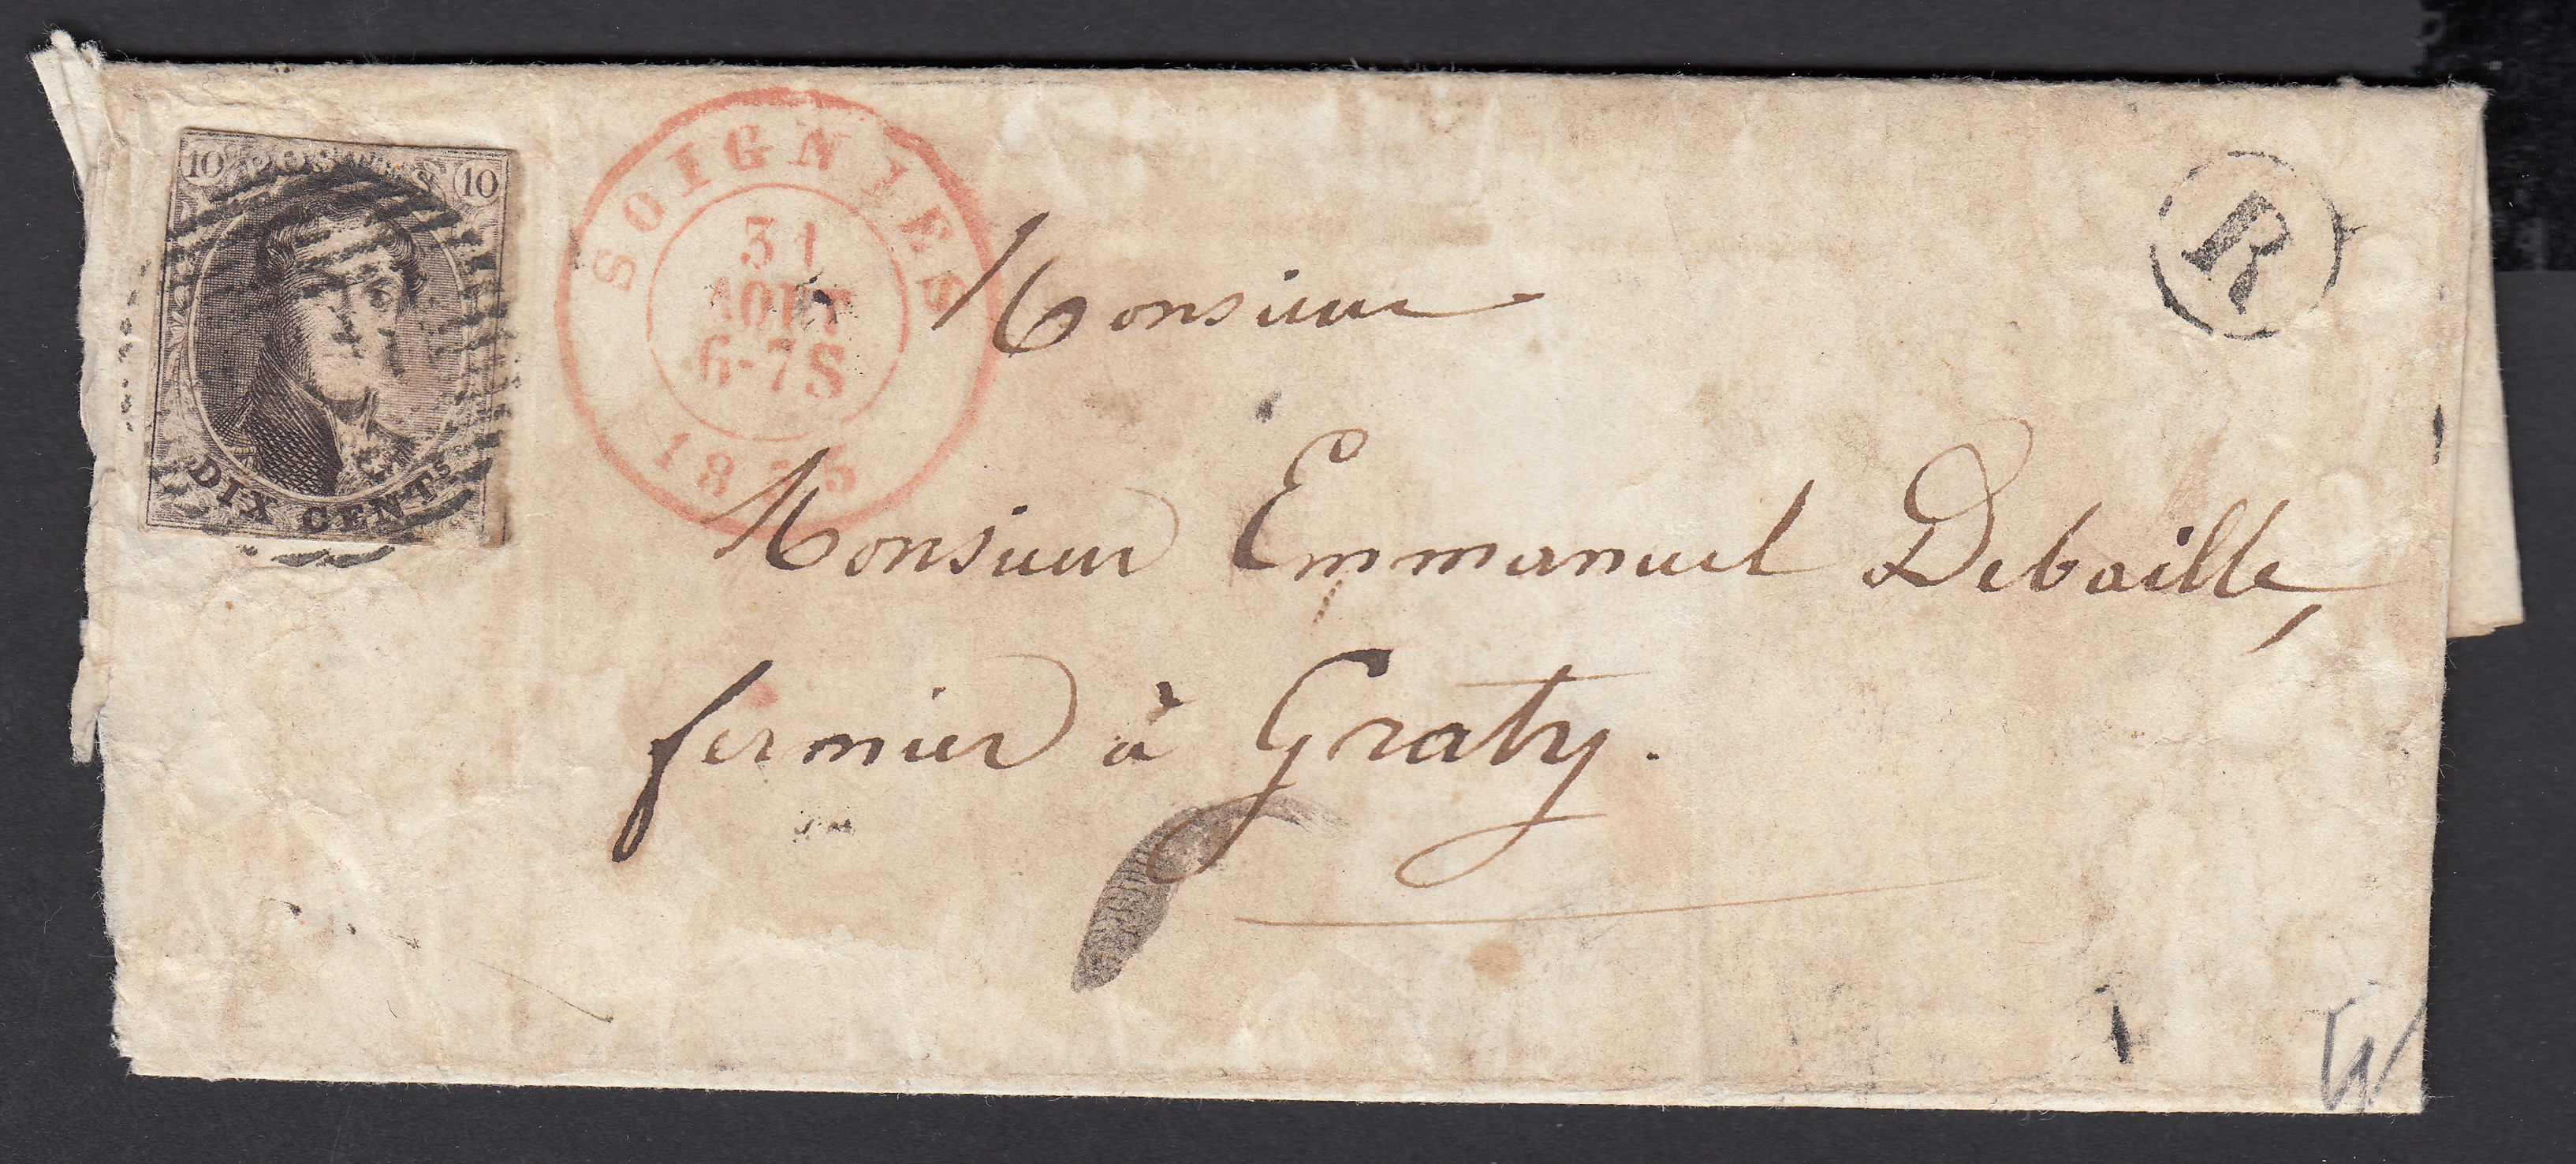 10 POSTES 10
DIX CENTS
SOIGNIES
31
AOUT
6-7S
1855
R
Monsieur
Monsieur Emmanuel Debaille,
fermier à Graty.